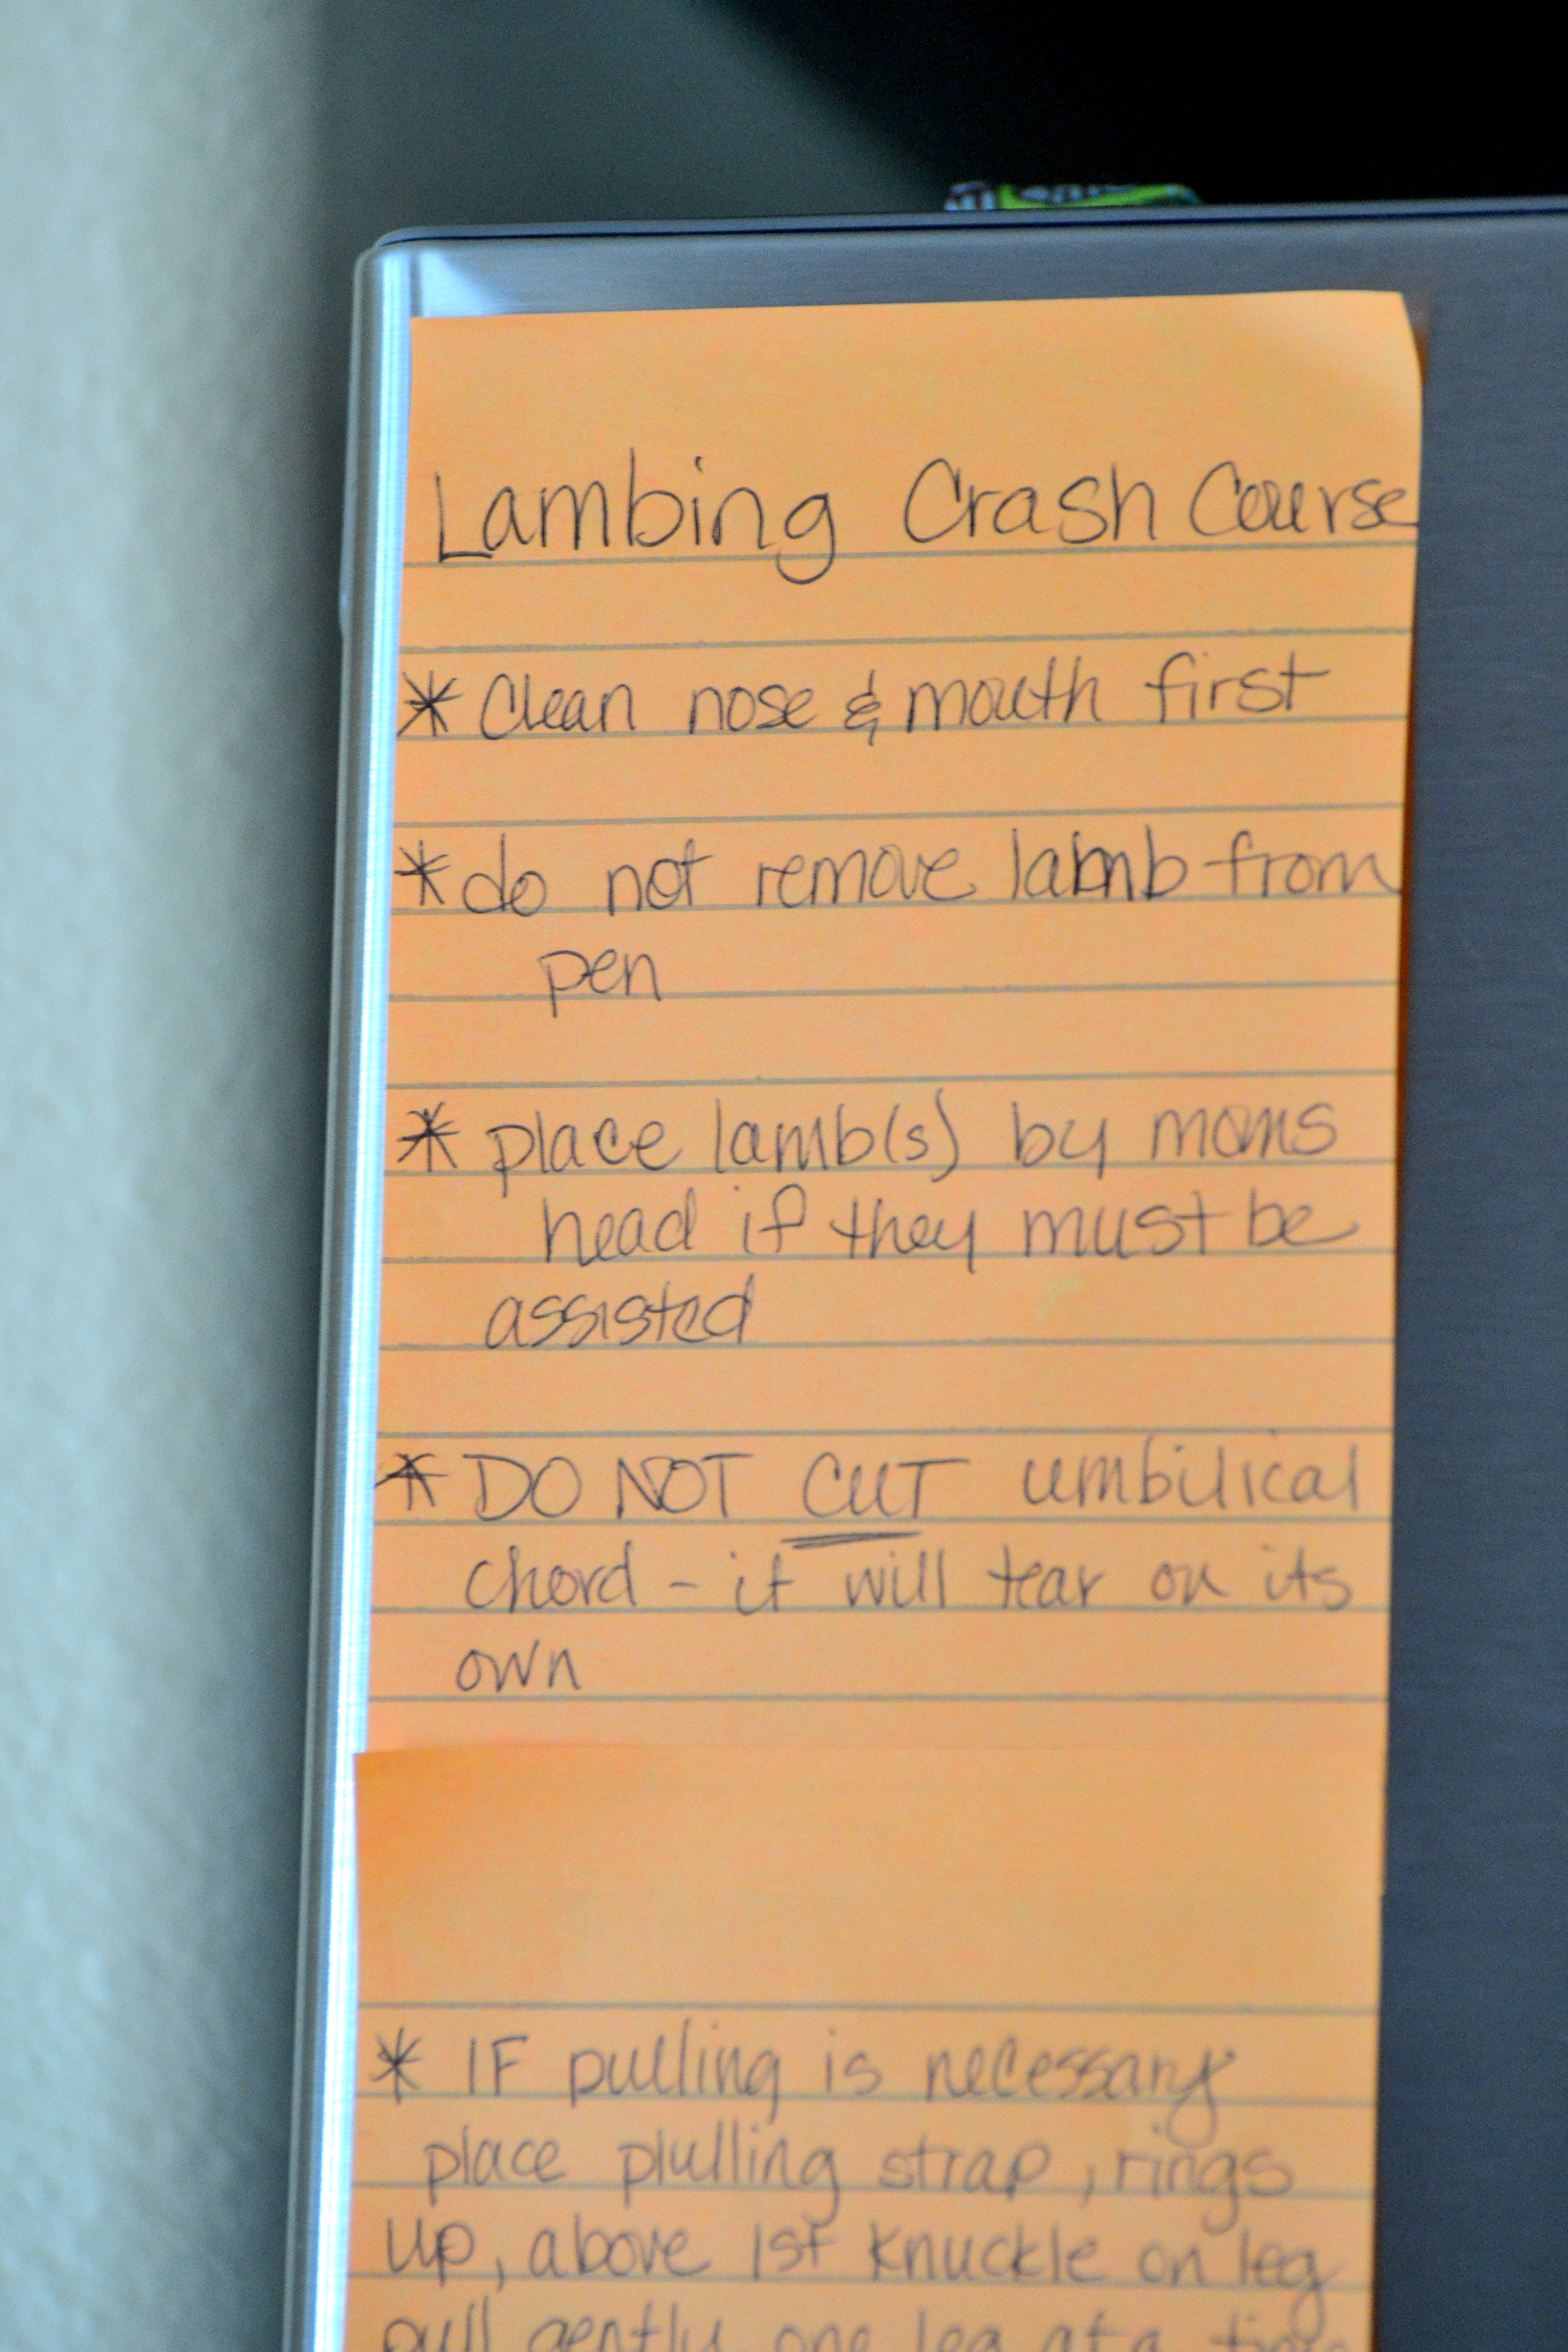 Lambing Crash Course
* Clean nose & mouth first
* do not remove lamb from
pen
* place lamb(s) by moms
head if they must be
assisted
* DO NOT CUT umbilical
chord - it will tear on its
own
* IF pulling is necessary
place plulling strap, rings
up, above 1st knuckle on leg
pull gently one leg at a time